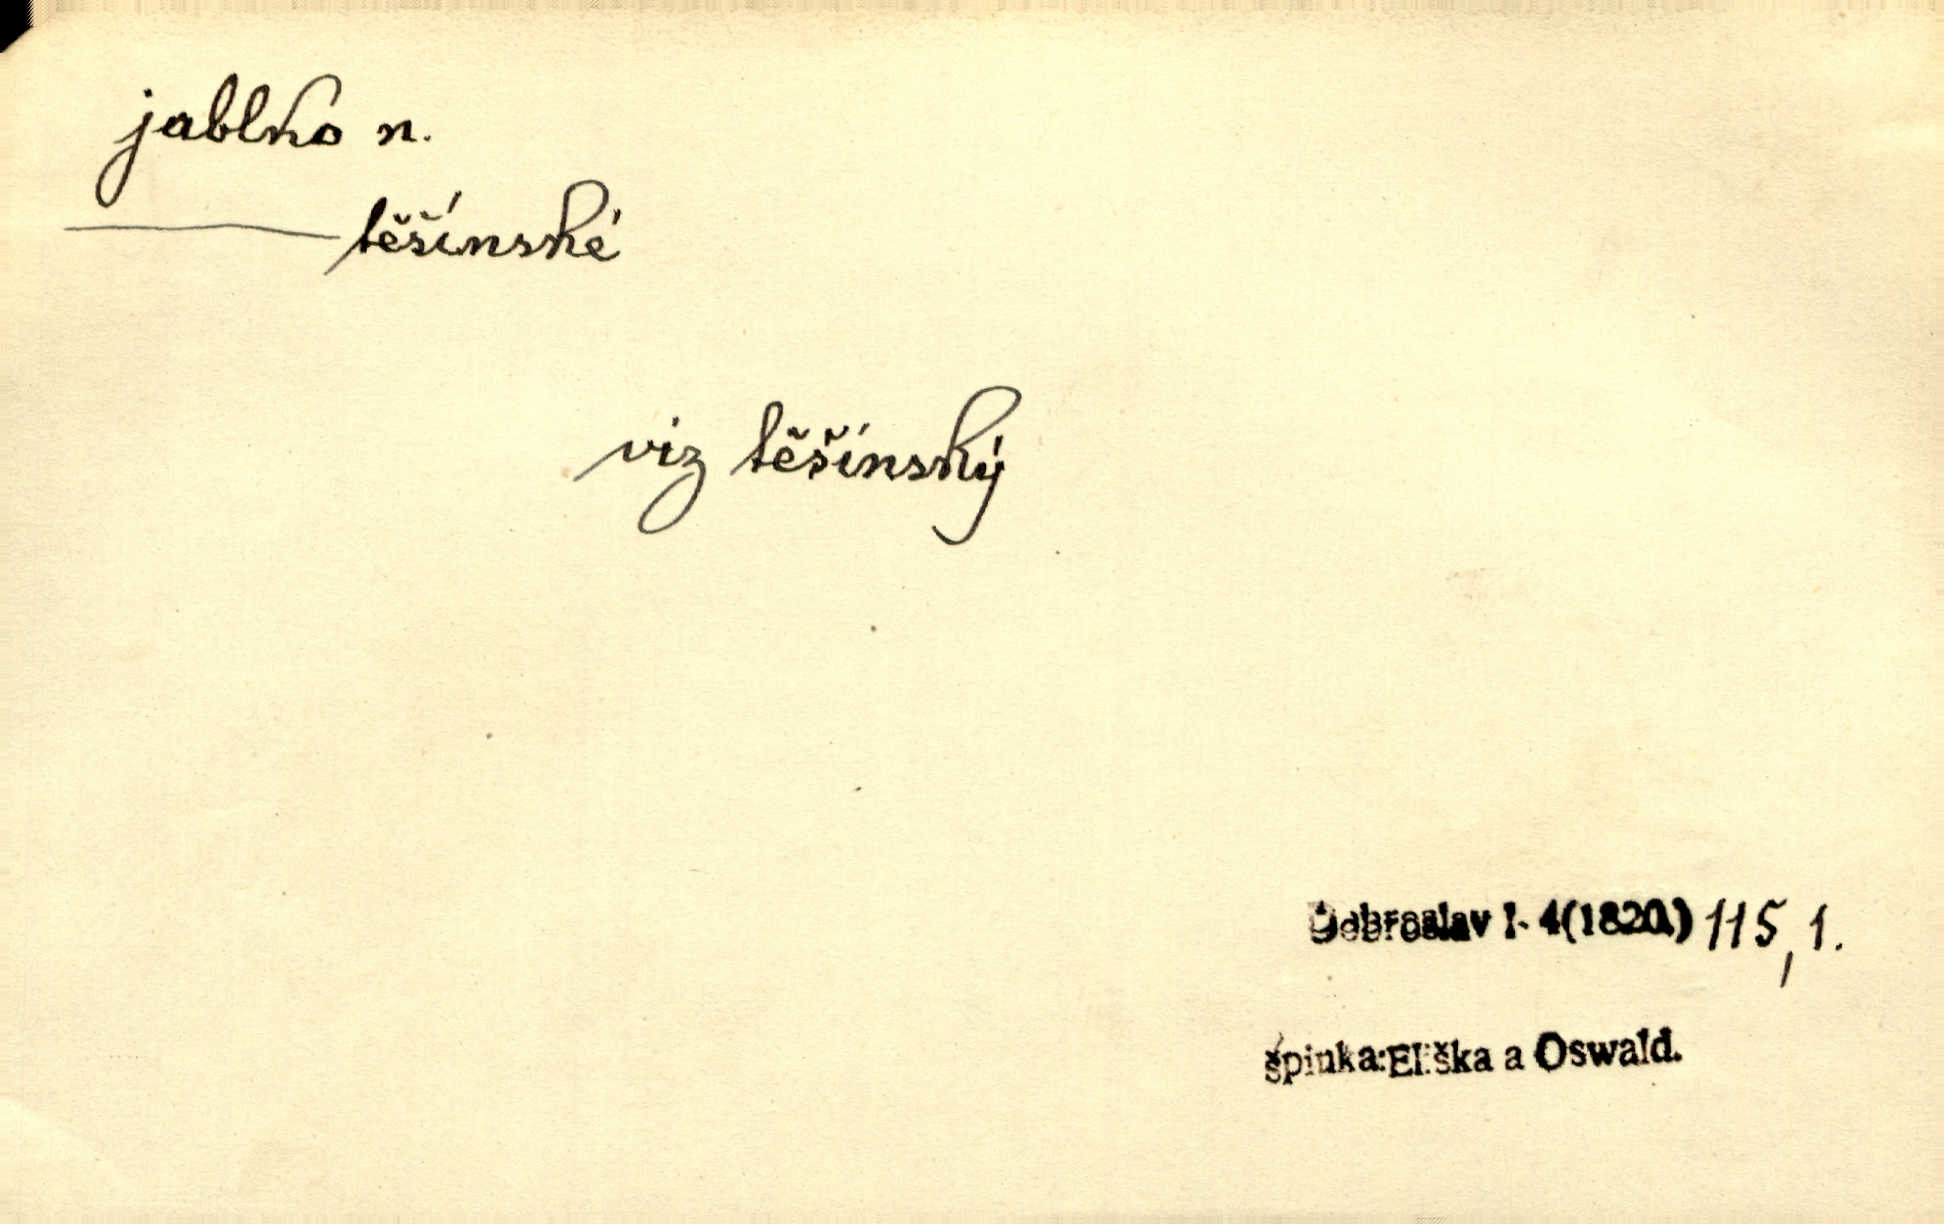 jablko n.
těšínské
viz těšínský
Dobroslav I. 4(1820.) 115, 1.
Špinka: Eliška a Oswald.